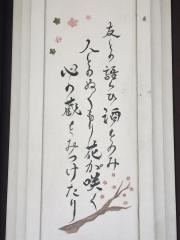 友との語らひ酒をのみ
人とのぬくもり花が咲く
心の観をみつけたり